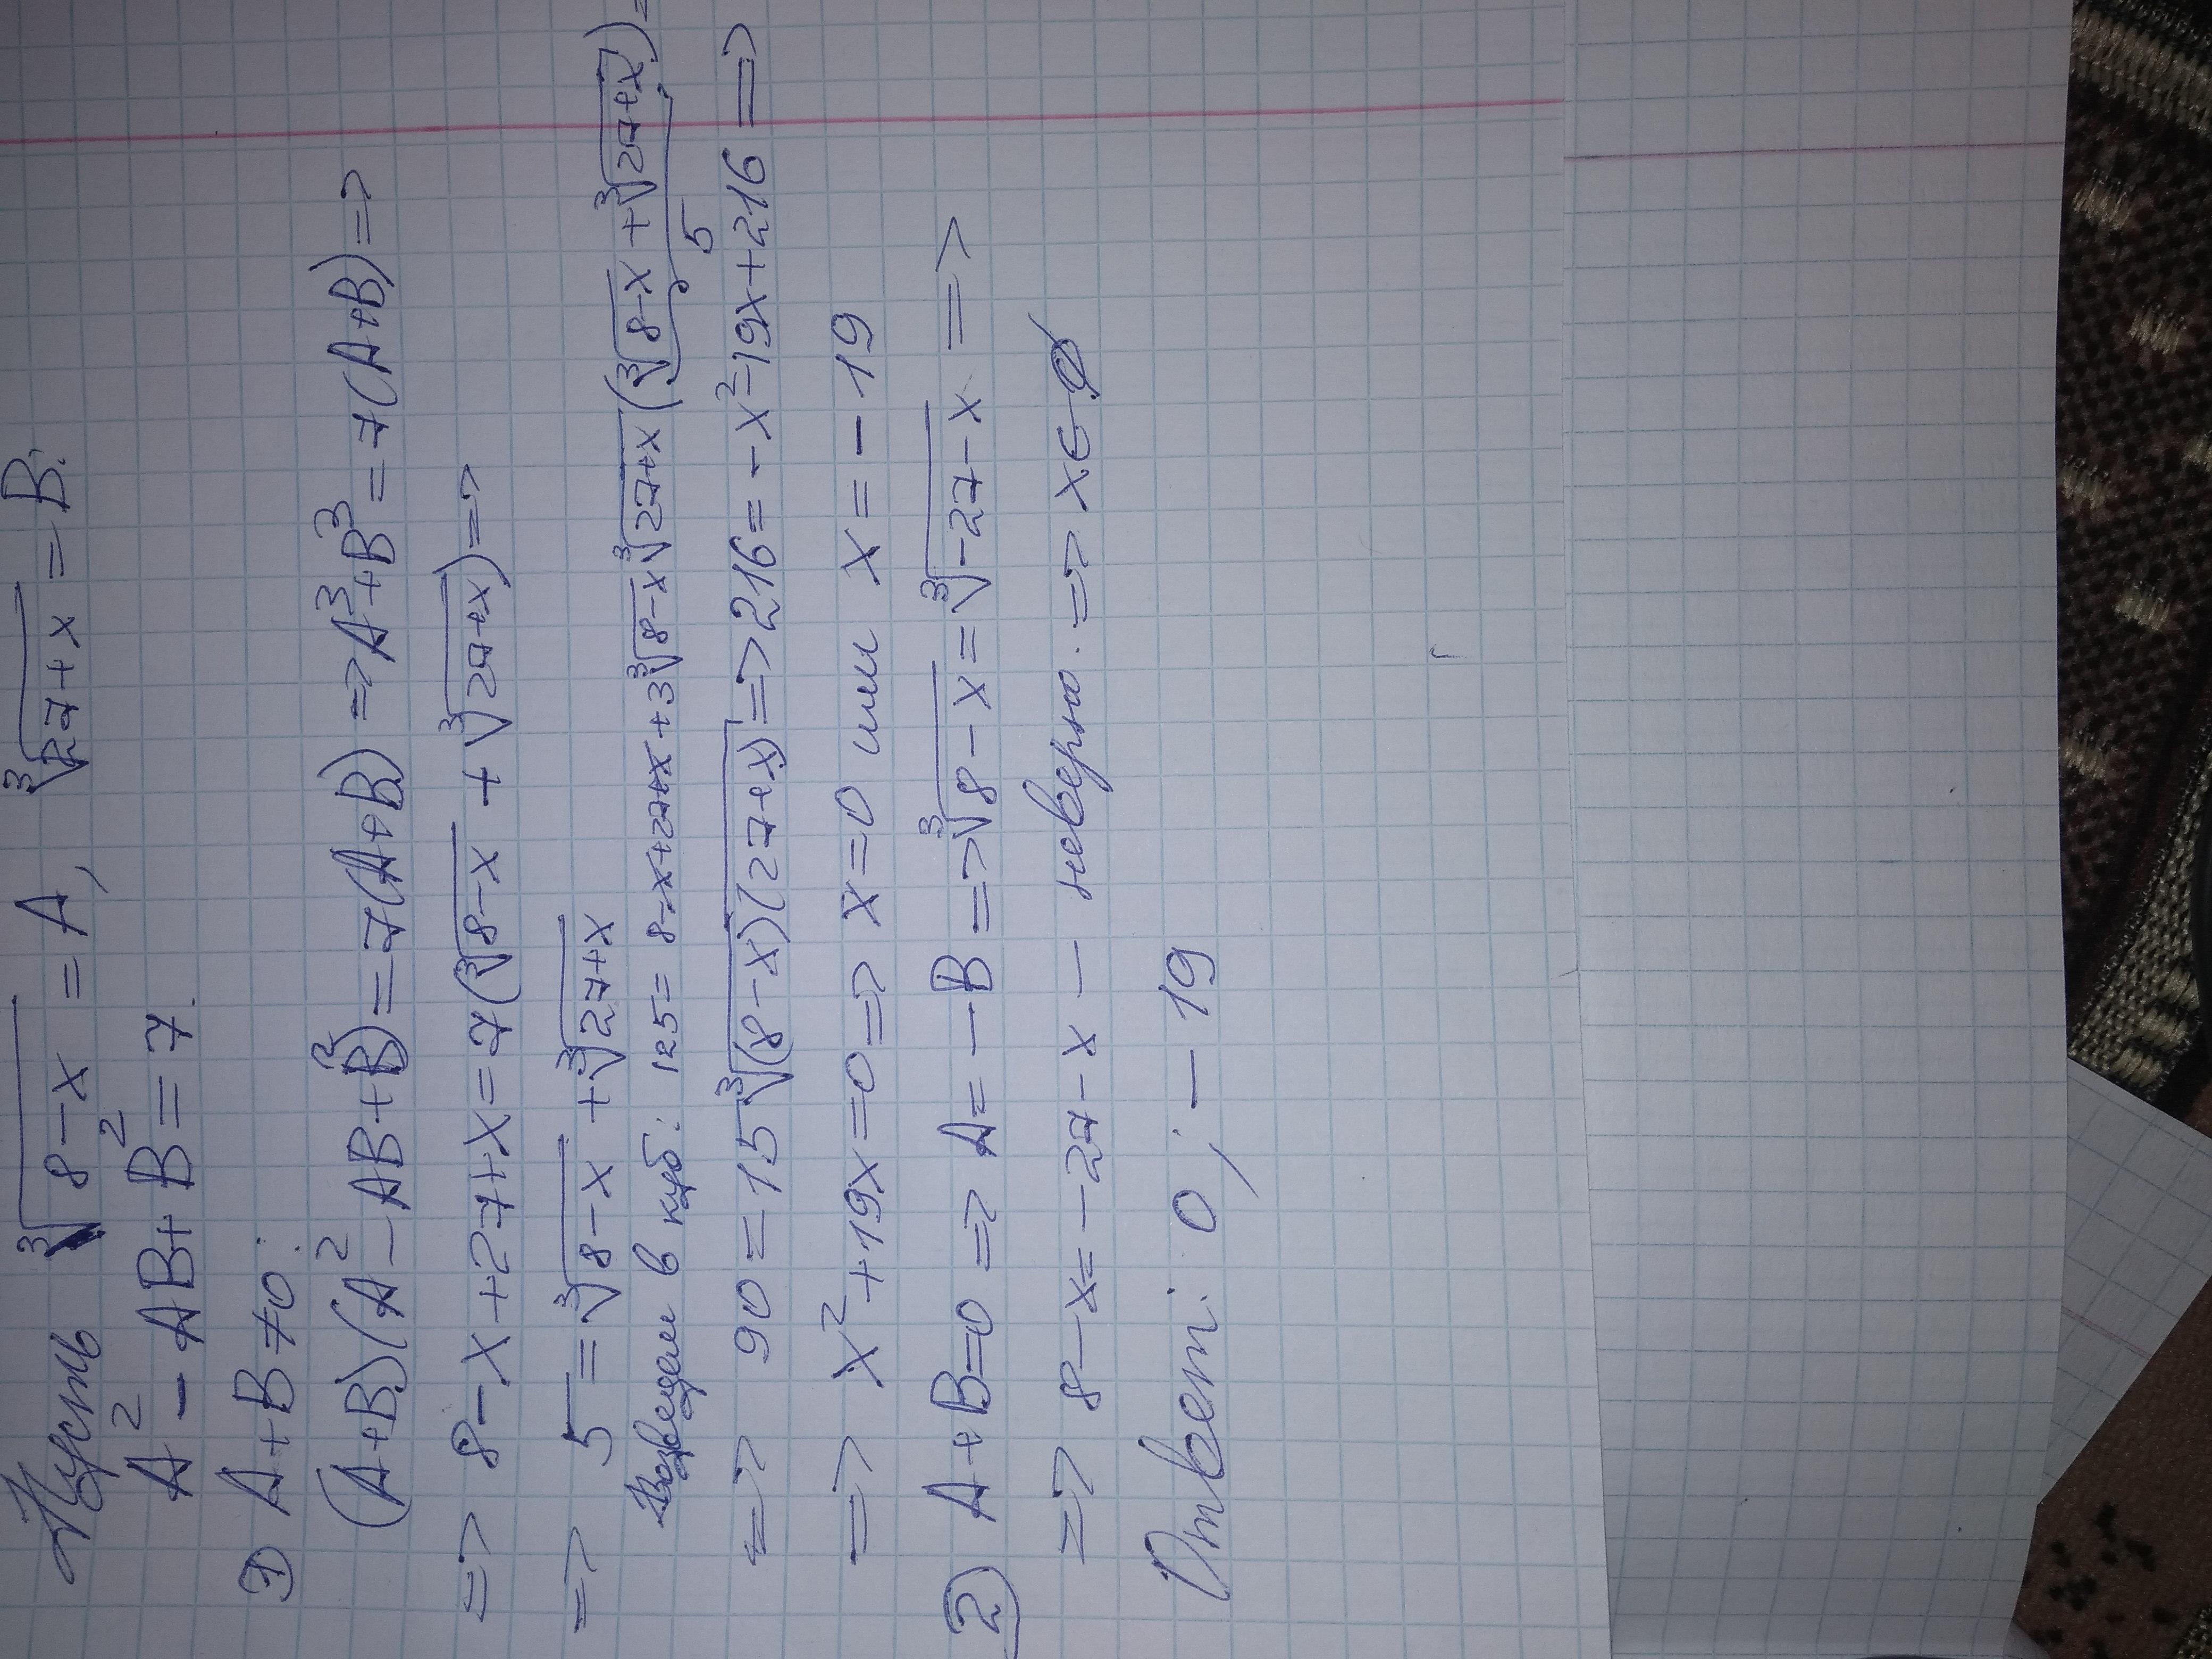 Пусть ∛(8-x) = A, ∛(27+x) = B.
A² - AB + B² = 7.
1) A+B≠0:
(A+B)(A² - AB + B²) = 7(A+B) => A³+B³ = 7(A+B) =>
=> 8-x+27+x = 7(∛(8-x) + ∛(27+x)) =>
=> 5 = ∛(8-x) + ∛(27+x)
Возведем в куб: 125 = 8-x+27+x+3∛(8-x)∛(27+x)(∛(8-x) + ∛(27+x)) =
5
=> 90 = 15∛((8-x)(27+x)) => 216 = -x²-19x+216 =>
=> x²+19x=0 => x=0 или x=-19
2) A+B=0 => A=-B => ∛(8-x) = ∛(-27-x) =>
=> 8-x=-27-x — неверно. => x∈∅
Ответ: 0; -19